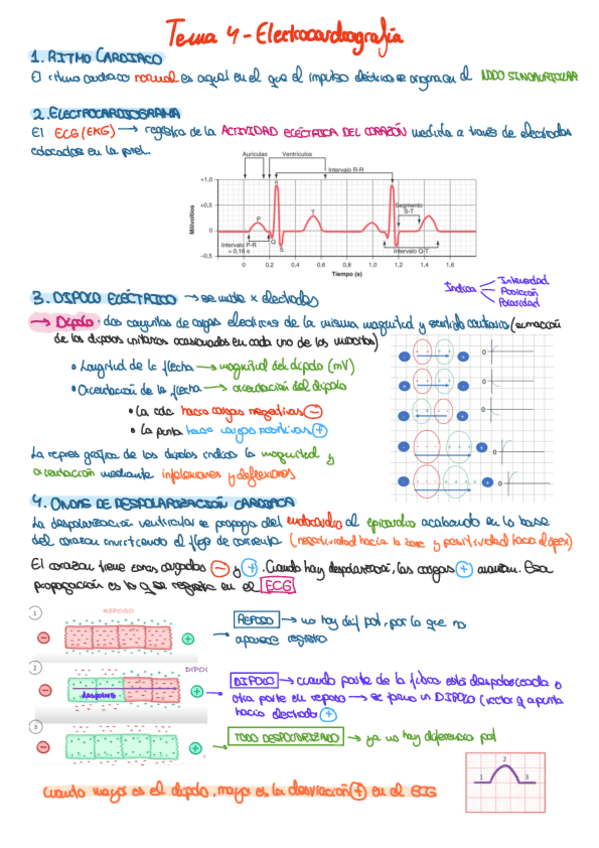 Tema 4 - Electrocardiografía
1. RITMO CARDIACO
El ritmo cardiaco normal es aquel en el que el impulso eléctrico se origina en el NODO SINOAURICULAR
2. ELECTROCARDIOGRAMA
El ECG (EKG) → registro de la ACTIVIDAD ELÉCTRICA DEL CORAZÓN medida a través de electrodos
colocados en la piel.
Aurículas Ventrículos
Intervalo R-R
+1,0
+0,5
0
–0,5
Milivoltios
P
Q
R
S
T
Segmento
S-T
Intervalo P-R
= 0,16 s
Intervalo Q-T
0 0,2 0,4 0,6 0,8 1,0 1,2 1,4 1,6
Tiempo (s)
3. DIPOLO ELÉCTRICO → se mide x electrodos
Indica
Intensidad
Posición
Polaridad
→ Dipolo: dos conjuntos de cargas eléctricas de la misma magnitud y sentido contrario (sumación
de los dipolos unitarios ocasionados en cada uno de los miocitos)
• Longitud de la flecha → magnitud del dipolo (mV)
• Orientación de la flecha → orientación del dipolo
• La cola hacia cargas negativas (-)
• La punta hacia cargas positivas (+)
La repres gráfica de los dipolos indica la magnitud y
orientación mediante inflexiones y deflexiones
4. ONDAS DE DESPOLARIZACIÓN CARDIACA
La despolarización ventricular se propaga del endocardio al epicardio acabando en la base
del corazón invirtiendo el flujo de corriente (negatividad hacia la base y positividad hacia el ápex)
El corazón tiene zonas cargadas (-) y (+). Cuando hay despolarización, las cargas (+) avanzan. Esa
propagación es lo q se registra en el ECG
1
REPOSO
REPOSO → no hay dif pot, por lo que no
aparece registro
2
DIPOLO → cuando parte de la fibra está despolarizada y
otra parte en reposo → se forma un DIPOLO (vector q apunta
hacia electrodo (+)
3
TODO DESPOLARIZADO → ya no hay diferencia pot
1 2 3
Cuando mayor es el dipolo, mayor es la desviación (+) en el ECG